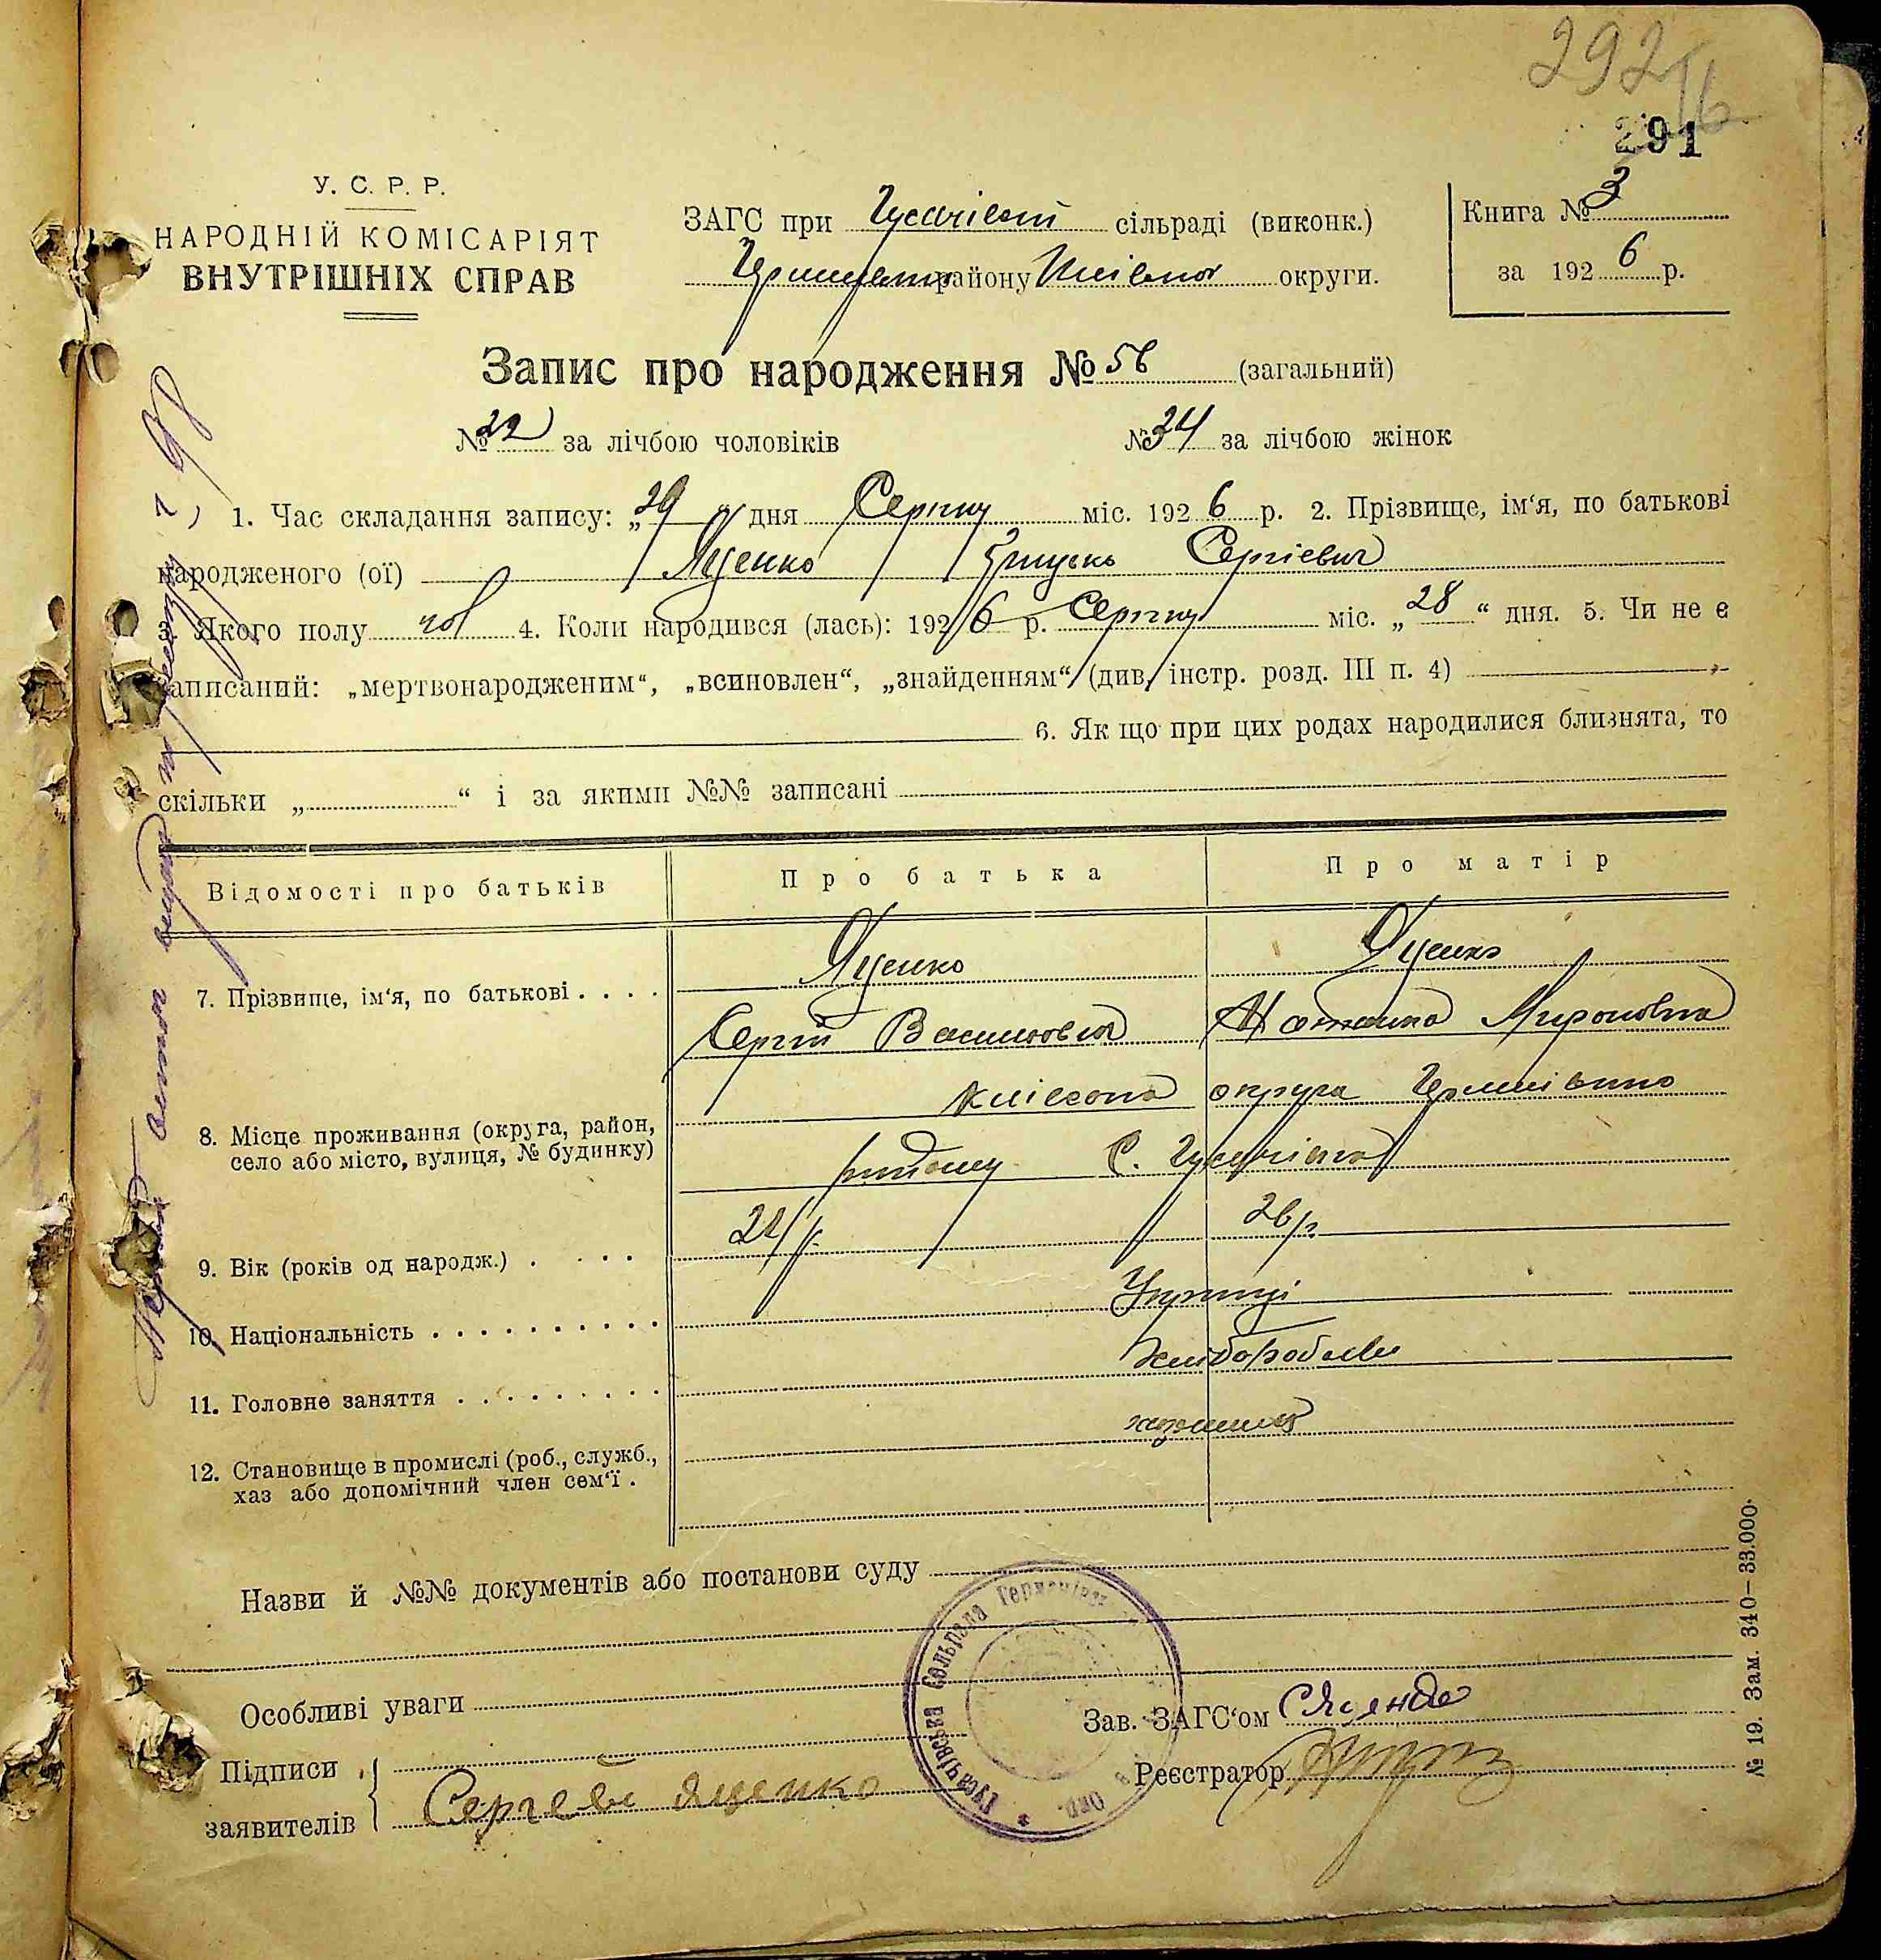 292
291
У. С. Р. Р.
НАРОДНІЙ КОМІСАРІЯТ
ВНУТРІШНІХ СПРАВ
ЗАГС при Гусачівській сільраді (виконк.)
району Київської округи.
Книга № 3
за 1926 р.
Запис про народження № 56 (загальний)
№ 22 за лічбою чоловіків
№ 34 за лічбою жінок
1. Час складання запису: „29“ дня Серпня міс. 1926 р. 2. Прізвище, ім‘я, по батькові
народженого (ої) Яценко Грицько Сергієвич
3. Якого полу чол 4. Коли народився (лась): 1926 р. Серпня міс. „28“ дня. 5. Чи не є
записаний: „мертвонародженим“, „всиновлен“, „знайденням“ (див. інстр. розд. III п. 4)
6. Як що при цих родах народилися близнята, то
скільки „ “ і за якими №№ записані
Відомості про батьків
Про батька
Про матір
7. Прізвище, ім‘я, по батькові . . . .
Яценко
Яценко
Сергій Васильович
Наталка Мироновна
8. Місце проживання (округа, район,
село або місто, вулиця, № будинку)
Київська округа
району С. Гусачівка
9. Вік (років од народж.) . . . .
26 р.
10. Національність . . . . . . . . . .
Українці
11. Головне заняття . . . . . . . . .
Хлібороби
12. Становище в промислі (роб., служб.,
хаз або допомічний член сем‘ї .
Назви й №№ документів або постанови суду
Особливі уваги
Гусачівська Сельрада
Окр.
Зав. ЗАГС‘ом С Яценко
Реєстратор
Підписи
заявителів
Сергей Яценко
№ 19. Зам. 340–33.000.